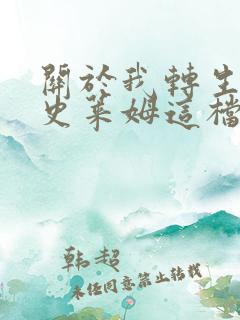 關於我轉生
史萊姆這檔
韩超
未经同意禁止转载